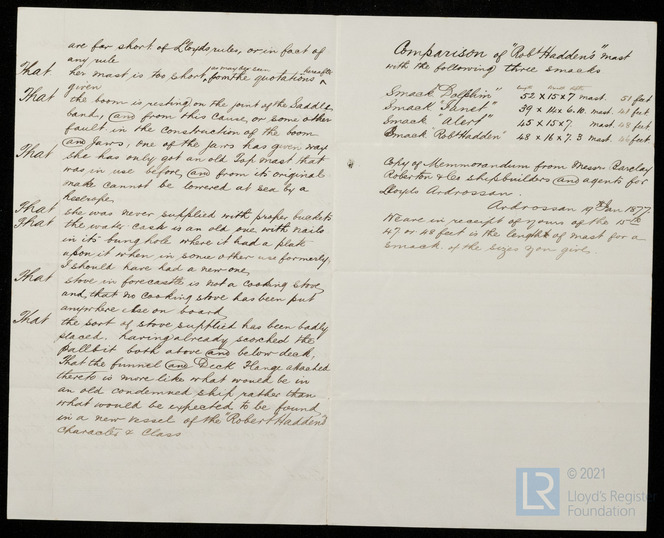 are far short of Lloyds rules, or in fact of
any rule
That her mast is too short, as may be seen from the quotations hereafter
given
That the boom is resting on the joint of the Saddle
band, and from this cause, or some other
fault in the construction of the boom
and Jaws, one of the jaws has given way
That She has only got an old Top mast that
was in use before, and from its original
make cannot be lowered at sea by a
heelrope.
That She was never supplied with proper buckets
That the water cask is an old one with nails
in its bunghole where it had a plate
upon it when in some other use formerly
I should have had a new one,
That stove in forecastle is not a Cooking Stove
and, that no cooking stove has been put
anywhere else on board
That the sort of stove supplied has been badly
placed, having already scorched the
pallbit both above and below deck,
That the funnel and Deck Flange attached
thereto is more like what would be in
an old condemned ship rather than
what would be expected to be found
in a new vessel of the "Robert Hadden's"
Character & Class
Comparison of "Robt Hadden's" mast
with the following three smacks
Smack "Dolphin" 52 x 15 x 7 mast. 51 feet
Smack "Janet" 39 x 14 x 6.10. mast. feet
Smack "Alert" 45 x 15 x 7. mast. 48 feet
Smack "Robt Hadden" 48 x 16 x 7.3 mast. 46 feet
Copy of Memorandum from Messrs Barclay
Roberton & Co shipbuilders and agents for
Lloyds Ardrossan.
Ardrossan 17th Jan. 1877.
We are in receipt of yours of the 15th
47 or 48 feet is the length of mast for a
smack of the sizes you give.
© 2021
LR
Lloyd's Register
Foundation